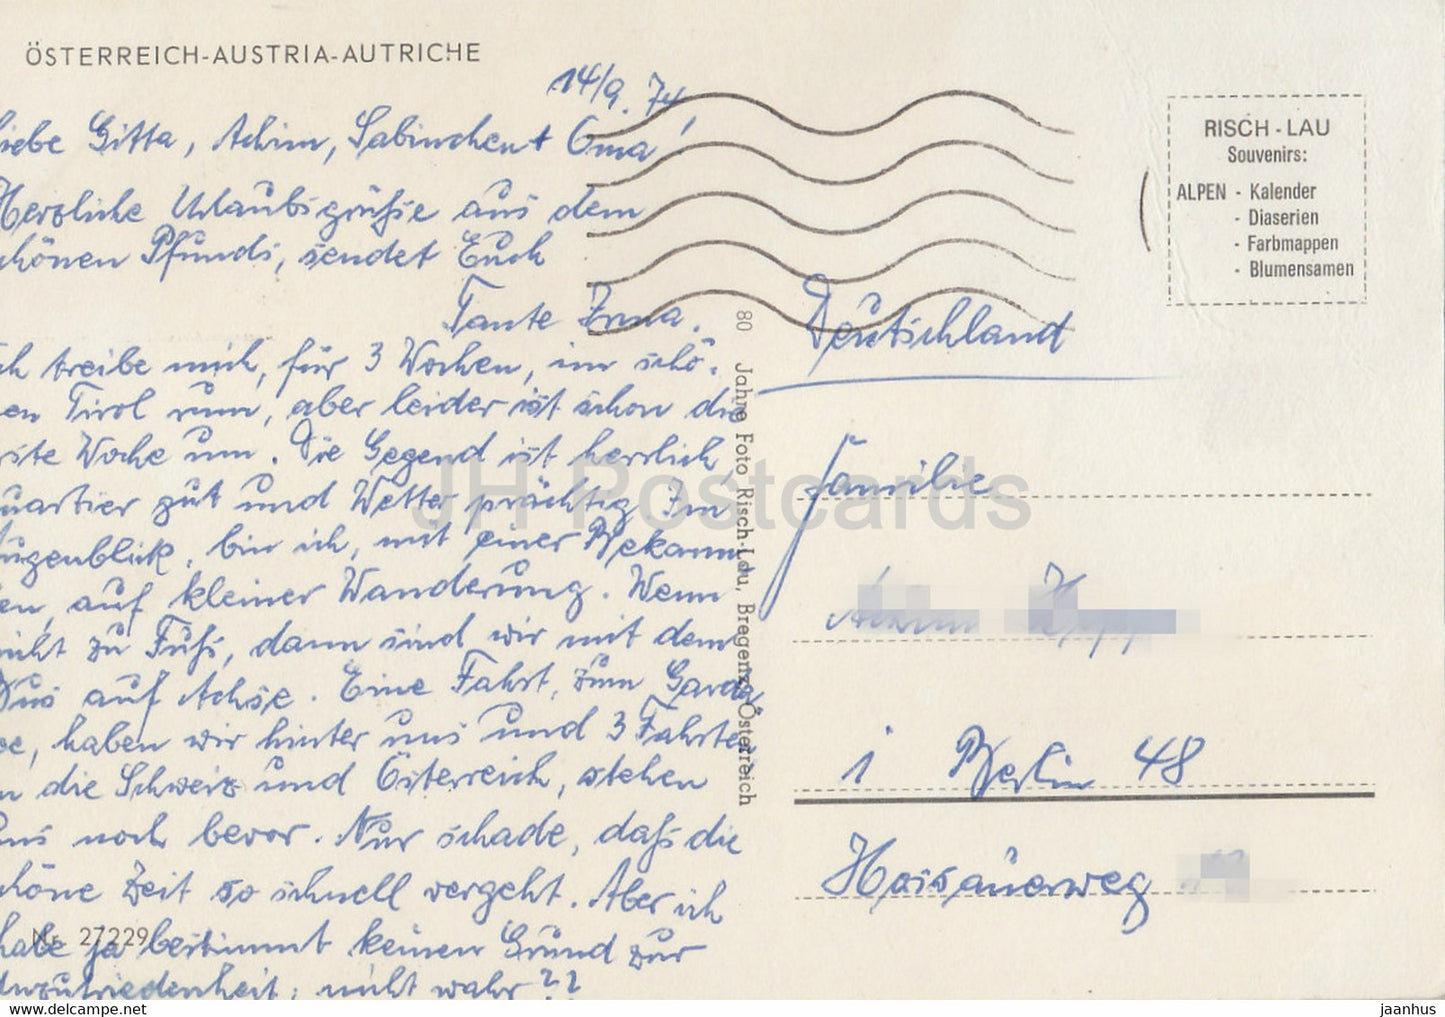 ÖSTERREICH-AUSTRIA-AUTRICHE
14/9. 74
iebe Gitta, Achim, Sabinchen + Oma!
Herzliche Urlaubsgrüße aus dem
chönen Pfunds, sendet Euch
Tante Irma.
ch treibe mich, für 3 Wochen, im schö-
en Tirol rum, aber leider ist schon die
rste Woche um. Die Gegend ist herrlich,
uartier gut und Wetter prächtig. Im
Augenblick, bin ich, mit einer Bekann
en, auf kleiner Wanderung. Wenn
nicht zu Fuß, dann sind wir mit dem
Bus auf Achse. Eine Fahrt, zum Garda
ee, haben wir hinter uns und 3 Fahrten
n die Schweiz und Österreich, stehen
uns noch bevor. Nur schade, daß die
chöne Zeit so schnell vergeht. Aber ich
habe ja bestimmt keinen Grund zur
Unzufriedenheit, nicht wahr??
Nr. 27229
80 Jahre Foto Risch-Lau, Bregenz, Österreich
RISCH - LAU
Souvenirs:
ALPEN - Kalender
- Diaserien
- Farbmappen
- Blumensamen
Deutschland
Familie
Achim
1 Berlin 48
JH Postcards
jaanhus
https://jhpostcards.com